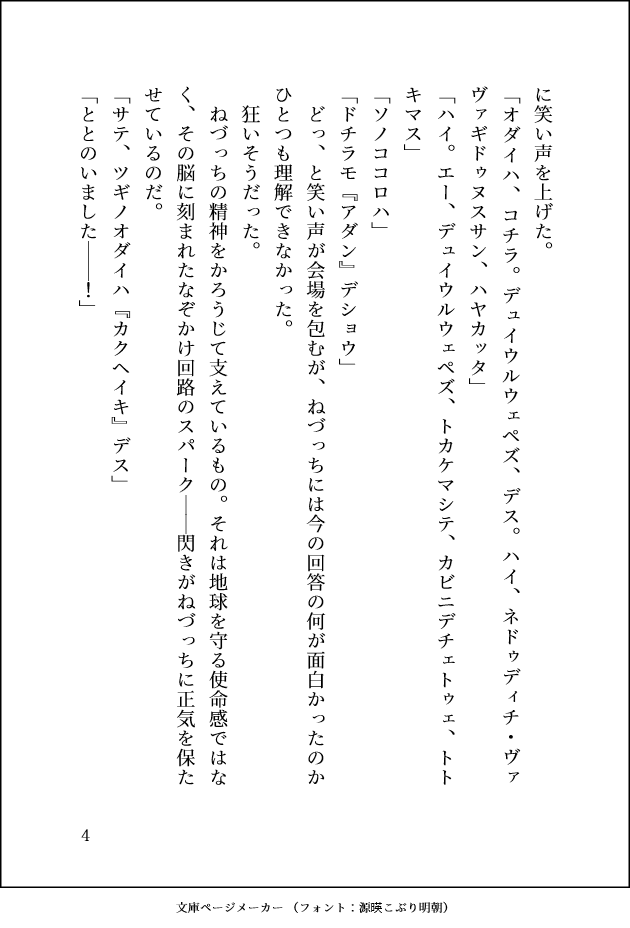 に笑い声を上げた。
「オダイハ、コチラ。デュイウルウェペズ、デス。ハイ、ネドゥディチ・ヴァ
ヴァギドゥヌスサン、ハヤカッタ」
「ハイ。エー、デュイウルウェペズ、トカケマシテ、カビニデチェトゥェ、トト
キマス」
「ソノココロハ」
「ドチラモ『アダン』デショウ」
どっ、と笑い声が会場を包むが、ねづっちには今の回答の何が面白かったのか
ひとつも理解できなかった。
狂いそうだった。
ねづっちの精神をかろうじて支えているもの。それは地球を守る使命感ではな
く、その脳に刻まれたなぞかけ回路のスパーク――閃きがねづっちに正気を保た
せているのだ。
「サテ、ツギノオダイハ『カクヘイキ』デス」
「ととのいました――！」
4
文庫ページメーカー（フォント：源暎こぶり明朝）